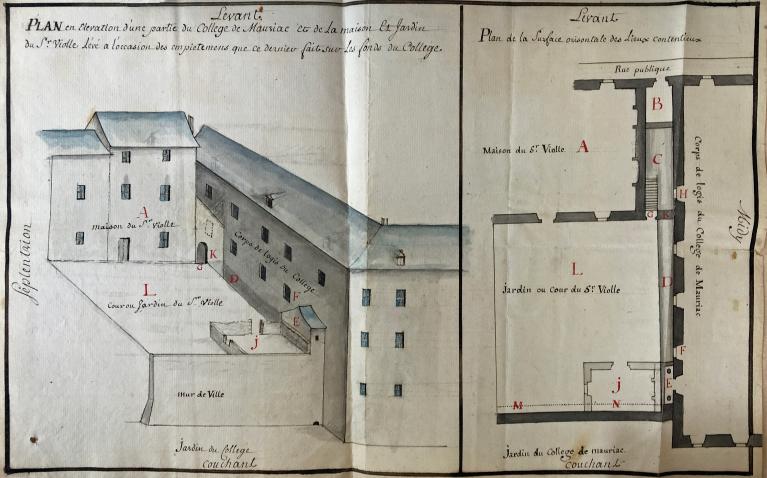 Levant.
PLAN en elevation d'une partie du College de Mauriac et de la maison Et Jardin
du Sr. Violle levé a l'occasion des empietemens que ce dernier fait sur les fonds du College.
Septentaion
A
maison du Sr. Violle
L
Cour ou Jardin du Sr. Violle
K
G
D
Corps de logis du College
F
E
j
mur de Ville
Jardin du College
couchant
Levant
Plan de la Surface orisontale des Lieux contentieux
Rue publique
B
Maison du Sr. Violle
A
C
H
G
K
Corps de logis du College de Mauriac
Midy
L
Jardin ou Cour du Sr. Violle
D
F
E
j
M
N
Jardin du College de mauriac
couchant